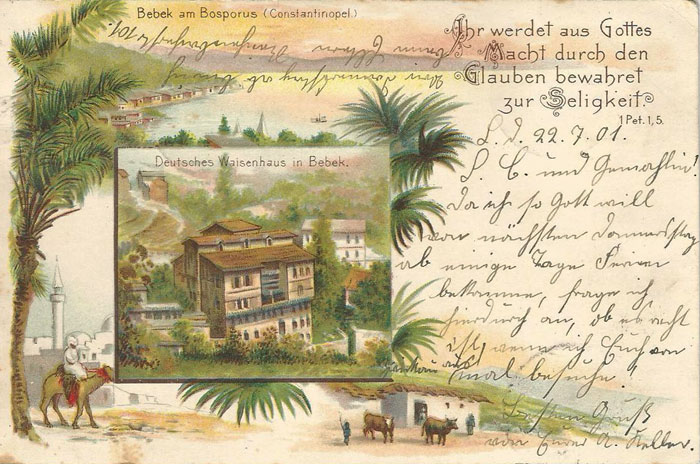 Bebek am Bosporus (Constantinopel.)
Ihr werdet aus Gottes
Macht durch den
Glauben bewahret
zur Seligkeit
1 Pet. 1, 5.
Deutsches Waisenhaus in Bebek.
L. d. 22. 7. 01.
L. C. und Gemahlin!
Da ich so Gott will
von nächsten Donnerstag
ab einige Tage Ferien
bekomme, frage ich
hierdurch an, ob es recht
ist, wenn ich Euch von
aus
mal besuche!
Gruß
von Eurer A. Keller.